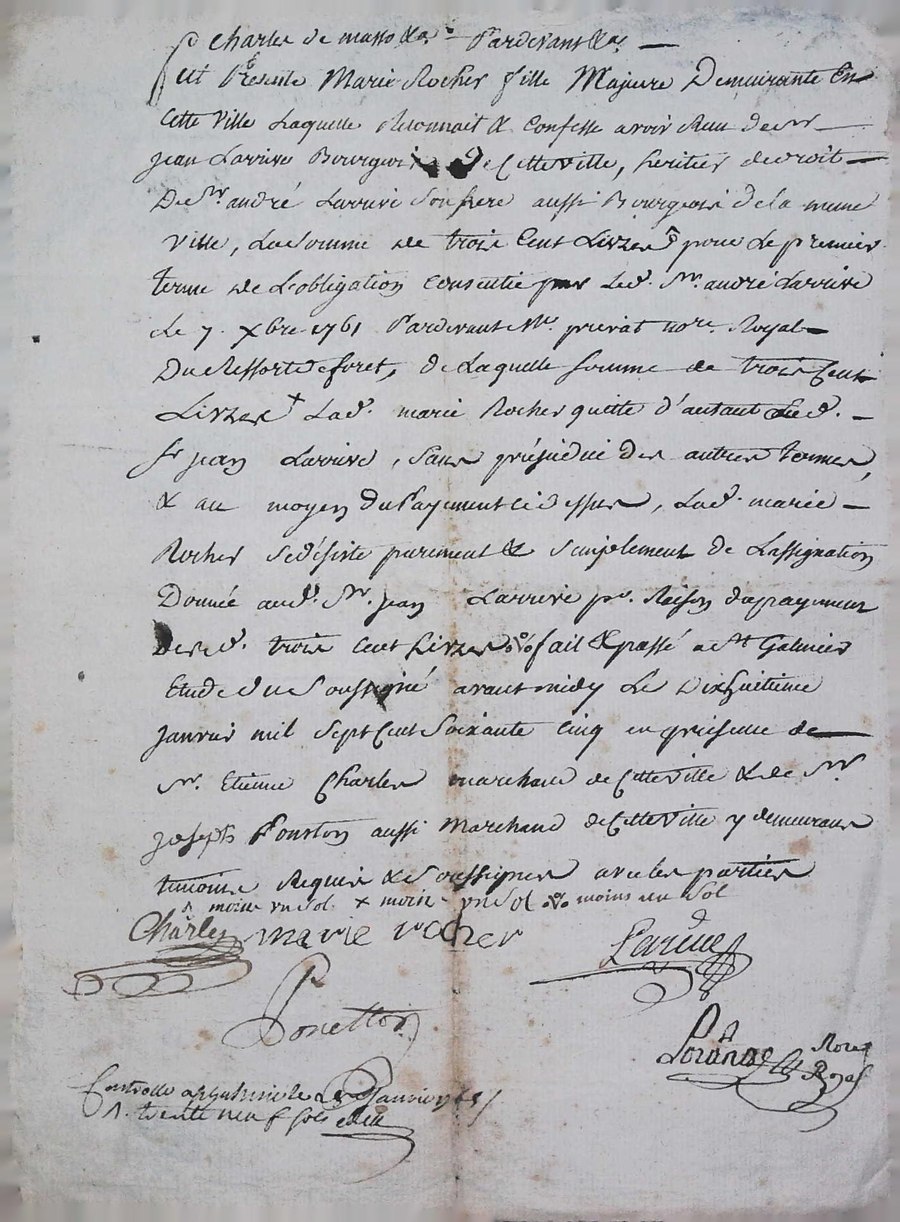 Charles de masso &a. Pardevant &a.
fut Présente Marie Rocher fille Majeure Demeurante En
Cette Ville Laquelle Reconnait & Confesse avoir Reçu de Sr
Jean Larrivé Bourgeois de Cette Ville, heritier de droit
De Sr. andré Larrivé Son frere aussi Bourgeois de la meme
Ville, La Somme de trois Cent Livres pour Le premier
terme de L'obligation Consentie par Led. Sr. andré Larrivé
Le 7. Xbre 1761 Pardevant Me. privat nore. Royal
Du Ressort de foret, de Laquelle somme de trois Cent
Livres + Lad. marie Rocher quitte d'autant Led.
Sr jean Larrivé, Sans préjudice des autres termes,
& au moyen du Payement Ci dessus, Lad. marie
Rocher Se désiste purement & Simplement de L'assignation
Donnée aud. Sr. Jean Larrivé pr. Raison du payement
Desd. trois Cent Livres fait & passé a St Galmier
Etude du Soussigné avant midy Le Dixhuitieme
Janvier mil Sept Cent Soixante Cinq en présence de
Sr. Etienne Charles marchand de Cette Ville & de Sr.
joseph aussi Marchand de Cette Ville y demeurans
temoins Requis & Soussignés avec les parties
moins un Sol x moins un Sol moins un Sol
Charles marie rocher Larivé
Nore.
Royal
Controllé a St Galmier le janvier 1765
R. trente neuf sols